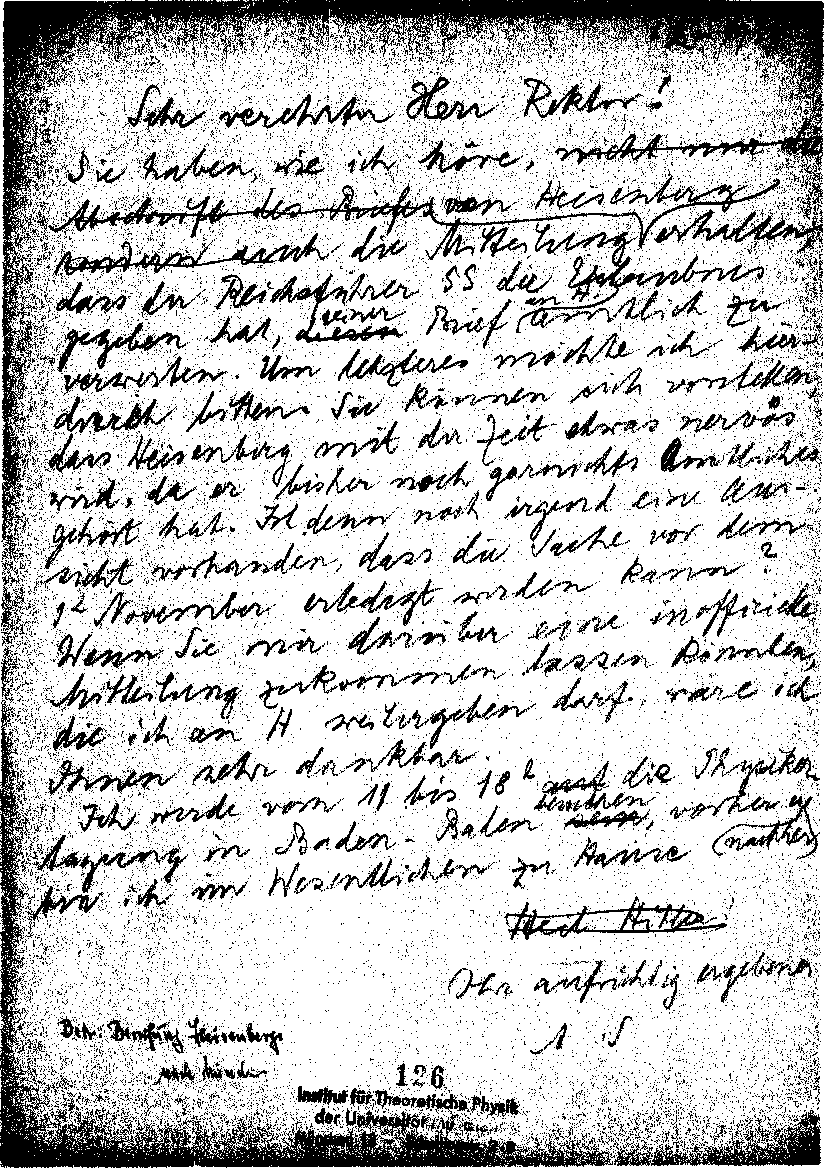 Sehr verehrter Herr Rektor!
Sie haben, wie ich höre, nicht nur die
Abschrift des Briefes von Heisenberg
sondern auch die Mitteilung erhalten,
dass der Reichsführer SS die Erlaubnis
gegeben hat, diesen seiner Brief an H. amtlich zu
verwerten. Um letzteres möchte ich hier-
durch bitten. Sie können sich vorstellen,
dass Heisenberg mit der Zeit etwas nervös
wird, da er bisher noch garnichts Amtliches
gehört hat. Ist denn noch irgend eine Aus-
sicht vorhanden, dass die Sache vor dem
1ten November erledigt werden kann?
Wenn Sie mir darüber eine inoffizielle
Mitteilung zukommen lassen könnten,
die ich an H weitergeben darf, wäre ich
Ihnen sehr dankbar.
Ich werde vom 11 bis 18 auf die Physiker-
tagung in Baden-Baden sein, vorher
bin ich im Wesentlichen zu Hause (nachher)
Heil Hitler!
Ihr aufrichtig ergebener
A S
Betr. Berufung Heisenbergs
nach München
126
Institut für Theoretische Physik
der Universität